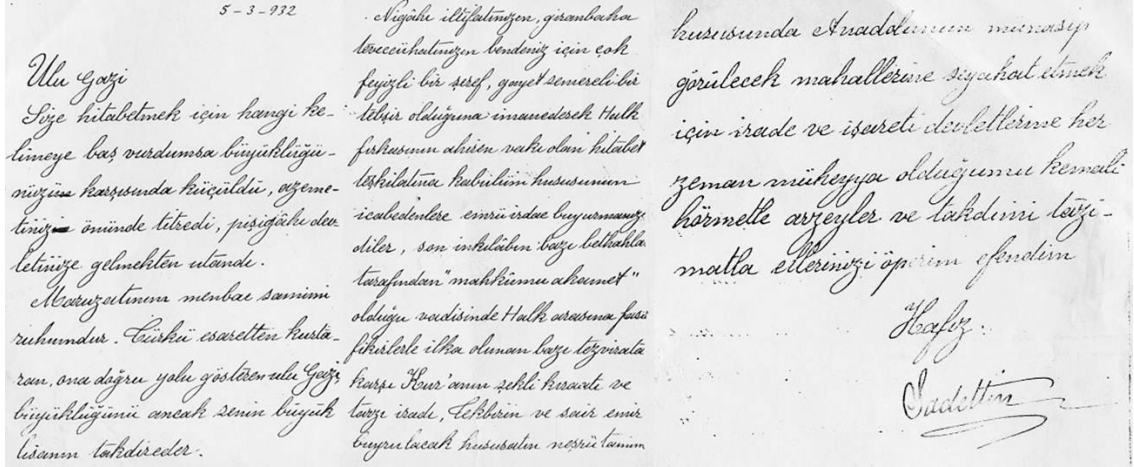 5-3-932
Ulu Gazi
Size hitabetmek için hangi ke-
limeye baş vurdumsa büyüklüğü-
nüzün karşısında küçüldü, azeme-
tinizin önünde titredi, pişigâhı dev-
letinize gelmekten utandı.
Maruzatımın menbaı samimi
ruhumdur. Türkü esaretten kurta-
ran, ona doğru yolu gösteren ulu Gazi,
büyüklüğünü ancak senin büyük
lisanın takdireder.
Nigâhı iltifatınızın, giranbaha
teveccühatınızın bendeniz için çok
feyizli bir şeref, gayet semereli bir
tebşir olduğuna imanederek Halk
fırkasının ahiren vaki olan hitabet
teşkilatına kabulüm hususunun
icabedenlere emrü irdae buyurmanızı
diler, son inkılâbın bazı bethahla
tarafından "mahkûmu akamet"
olduğu vadisinde Halk arasına fasit
fikirlerle ilka olunan bazı tezvirata
karşı Kur'anın şekli kıraati ve
tarzı iradı, Tekbirin ve sair emir
buyrulacak hususatın neşrü tamim
hususunda Anadolunun münasip
görülecek mahallerine siyahat etmek
için irade ve işareti devletlerine her
zeman müheyya olduğumu kemali
hörmetle arzeyler ve takdimi tazi-
matla ellerinizi öperim efendim
Hafız
Sadettin